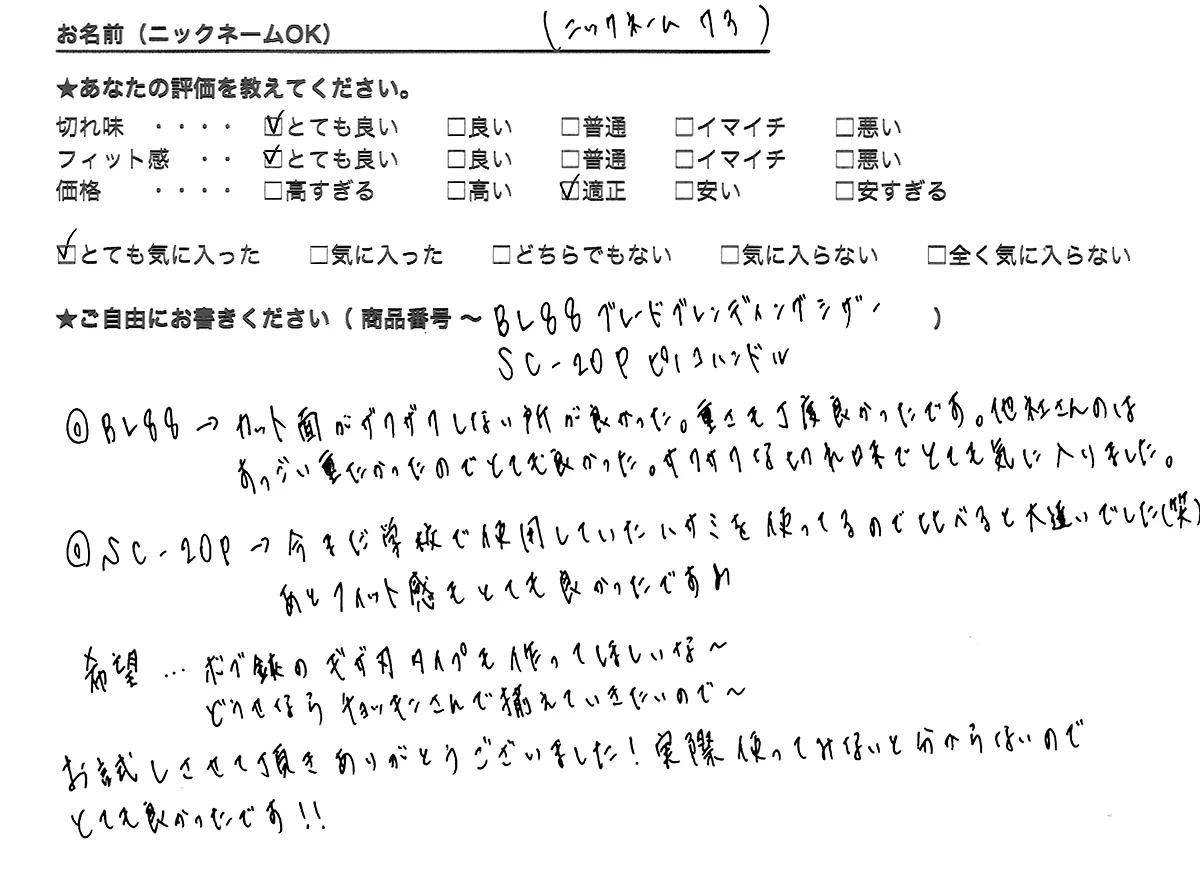 お名前（ニックネームOK） (ニックネーム 73)
★あなたの評価を教えてください。
切れ味 ・・・・ ☑とても良い □良い □普通 □イマイチ □悪い
フィット感 ・・ ☑とても良い □良い □普通 □イマイチ □悪い
価格 ・・・・ □高すぎる □高い ☑適正 □安い □安すぎる
☑とても気に入った □気に入った □どちらでもない □気に入らない □全く気に入らない
★ご自由にお書きください（ 商品番号 〜 BL88 ブレードブレンディングシザー ）
SC-20P ピノコハンドル
◎BL88 → カット面がザクザクしない所が良かった。重さも丁度良かったです。他社さんのは
あっごい重たかったのでとても良かった。サクサクな切れ味でとても気に入りました。
◎SC-20P → 今まだ学校で使用していたハサミを使ってるので比べると大違いでした(笑)
あとフィット感もとても良かったですね
希望 … ボブ鋏のギザ刃タイプも作ってほしいな〜
どうせならチョッキンさんで揃えていきたいので〜
お試しさせて頂きありがとうございました! 実際使ってみないと分からないので
とても良かったです!!